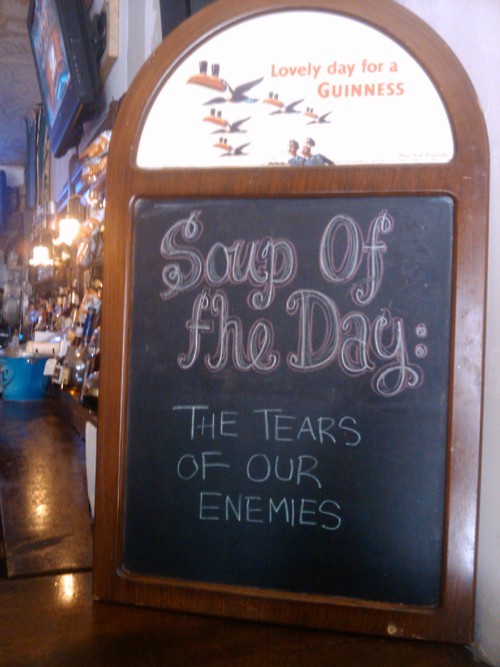 Lovely day for a
GUINNESS
Soup Of
the Day:
THE TEARS
OF OUR
ENEMIES